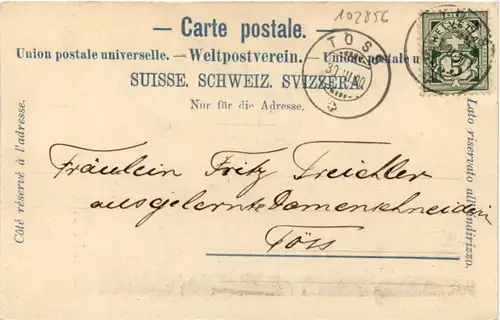 102856
— Carte postale. —
Union postale universelle. — Weltpostverein. — Unione postale u
SUISSE. SCHWEIZ. SVIZZERA.
Nur für die Adresse.
TÖSS
Côté réservé à l'adresse.
Lato riservato all'indirizzo.
Fräulein Fritz Treichler
ausgelernte Damenschneiderin
Töss